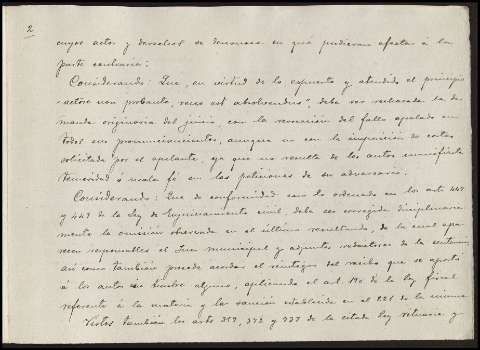 2
cuyos actos y derechos se denuncia en qué pudieran afectar á la
parte contraria;
Considerando: Que, en virtud de lo expuesto y atendido el principio
"actore non probante, reus est absolvendus", debe ser rechazada la de-
manda originaria del juicio, con la revocación del fallo apelado en
todos sus pronunciamientos, aunque no con la imposición de costas
solicitada por el apelante, ya que no resulta de los autos manifiesta
temeridad ó mala fé en las peticiones de su adversario.
Considerando: Que de conformidad con lo ordenado en los art 447
y 449 de la ley de Enjuiciamiento civil, debe ser corregida disciplinaria-
mente la omisión observada en el último resultando, de la cual apa-
recen responsables el Juez municipal y adjuntos redactores de la sentencia,
así como también procede acordar el reintegro del recibo que se aportó
á los autos sin timbre alguno, aplicando el art 190 de la ley fiscal
referente á la materia y la sanción establecida en el 221 de la misma
Vistos también los arts 359, 372 y 733 de la citada ley rituaria y